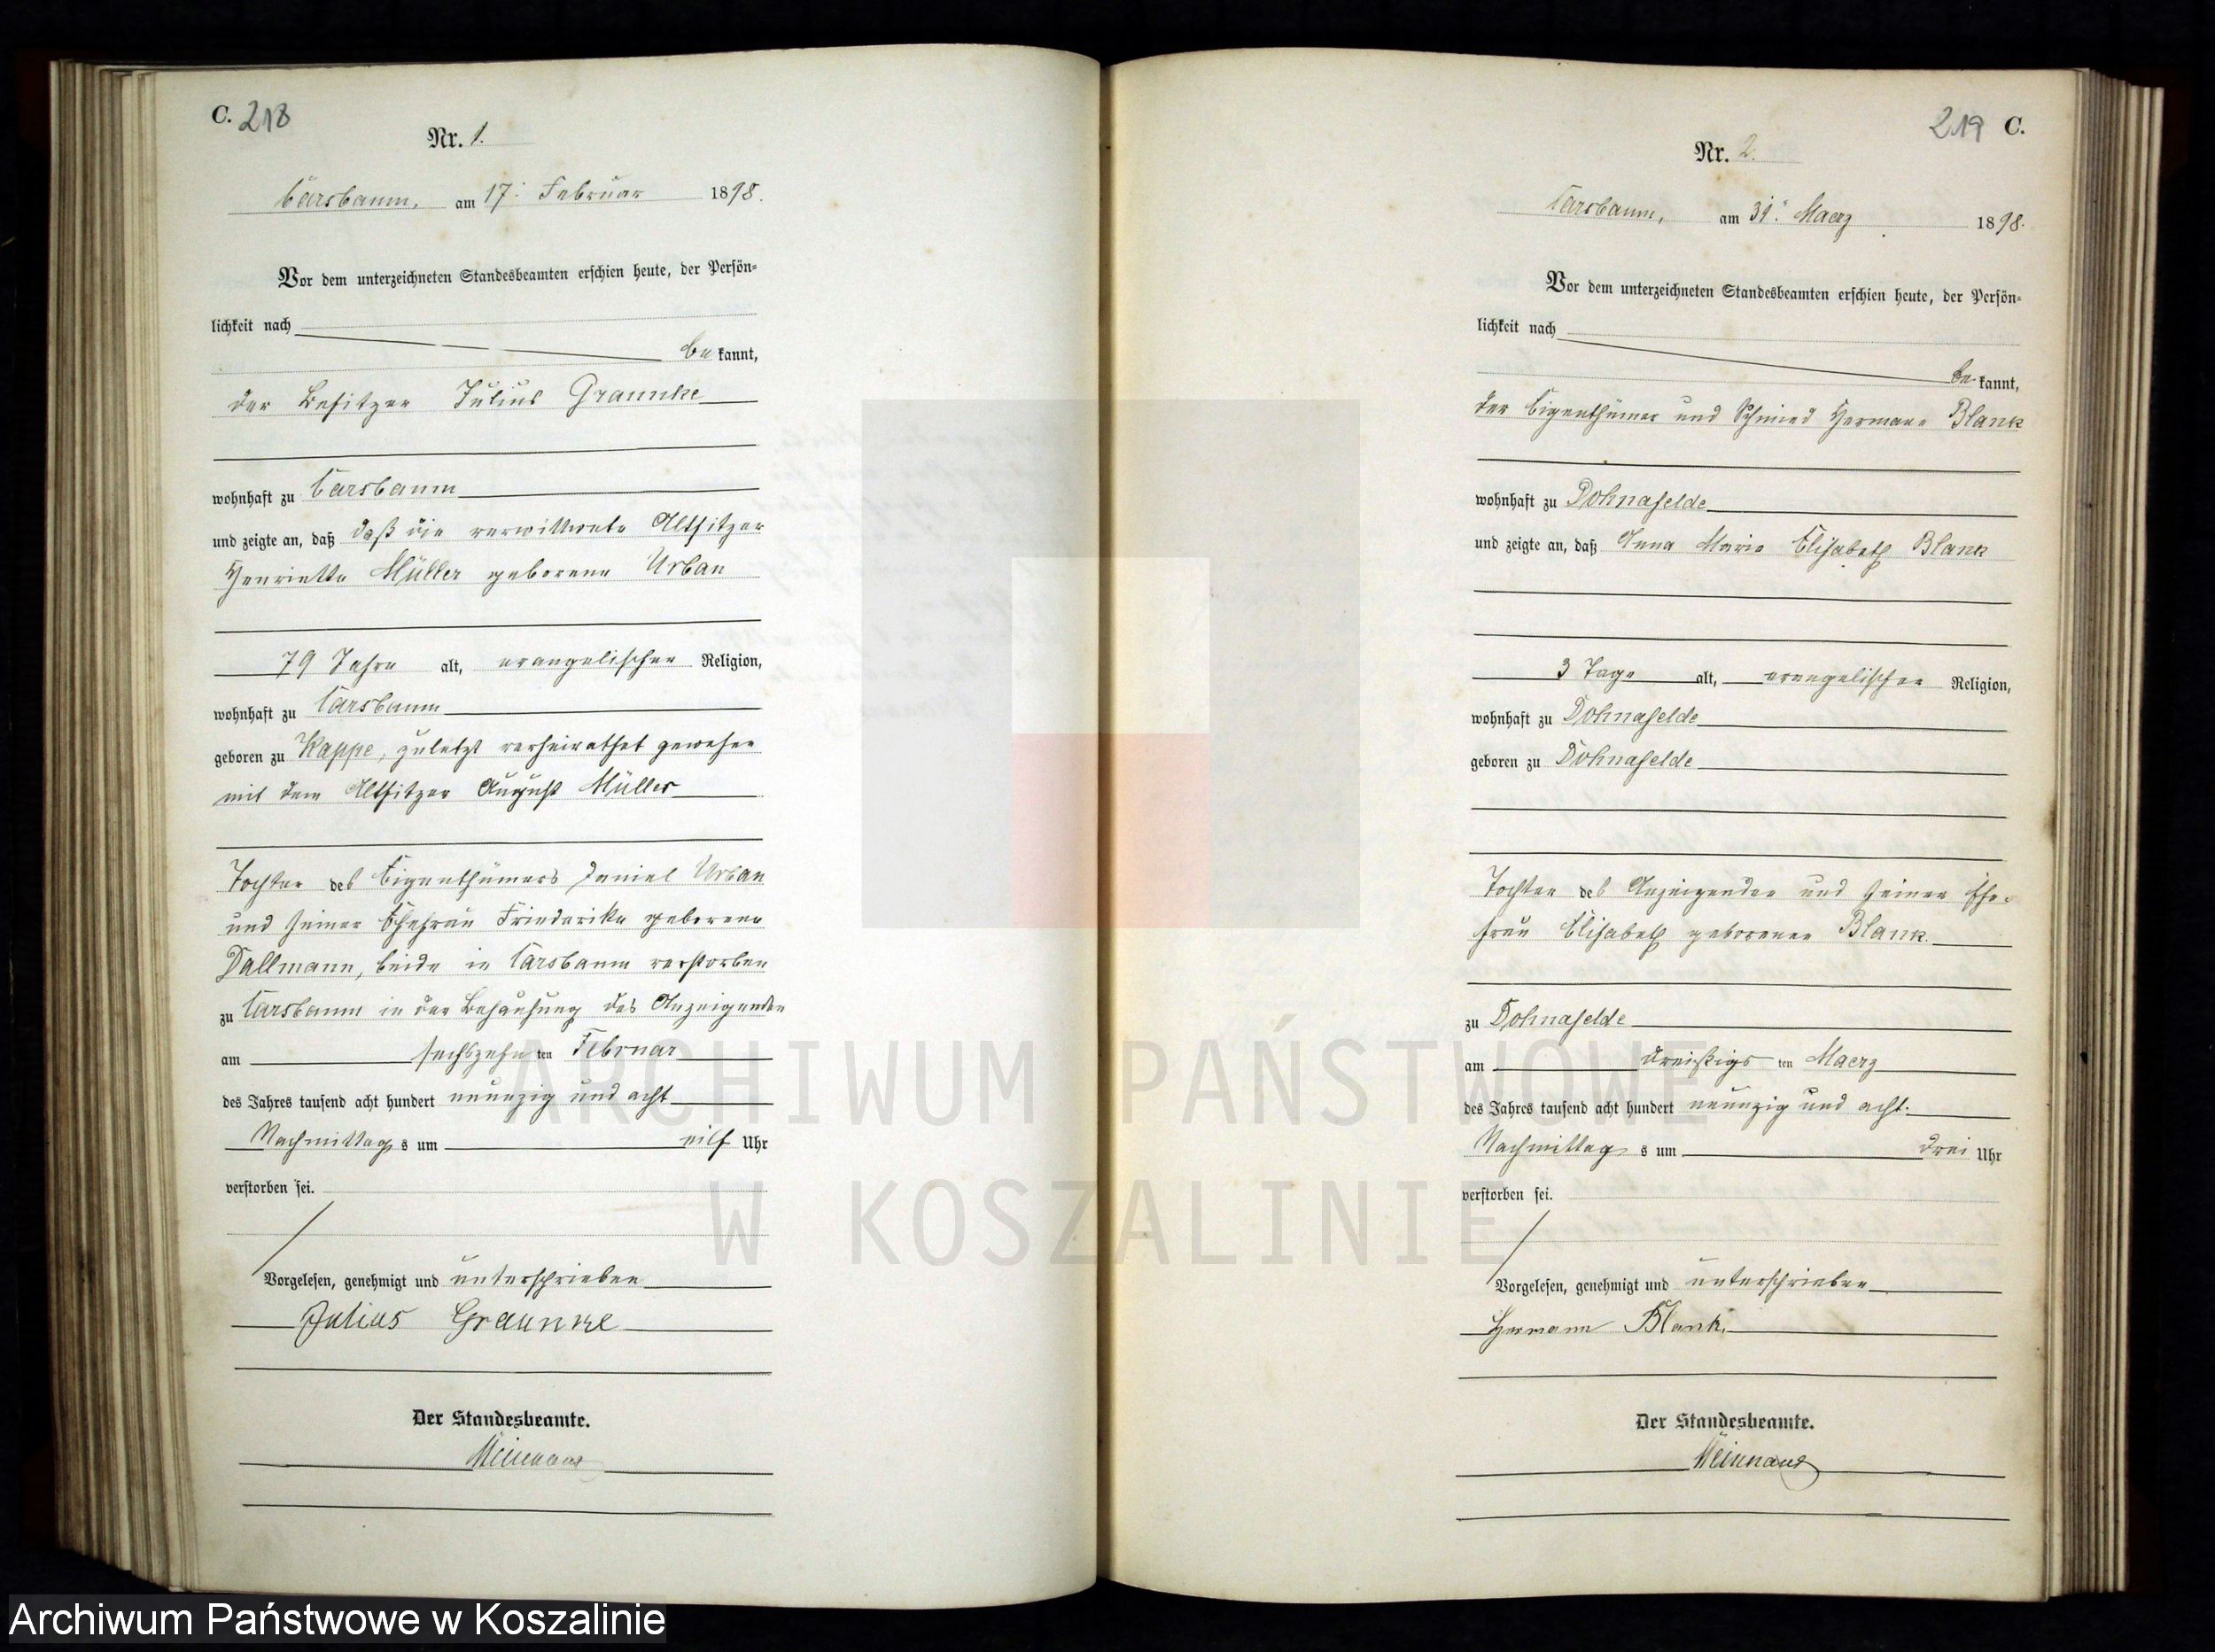 C. 218
Nr. 1.
Carsbaum, am 17. Februar 1898.
Vor dem unterzeichneten Standesbeamten erschien heute, der Persön-
lichkeit nach
be kannt,
der Besitzer Julius Graunke
wohnhaft zu Carsbaum
und zeigte an, daß daß die verwittwete Altsitzer
Henriette Müller geborene Urban
79 Jahre alt, evangelischer Religion,
wohnhaft zu Carsbaum
geboren zu Kappe, zuletzt verheirathet gewesen
mit dem Altsitzer August Müller
Tochter des Eigenthümers Daniel Urban
und seiner Ehefrau Friederike geborene
Dallmann, beide in Carsbaum verstorben
zu Carsbaum in der Behausung des Anzeigenden
am sechszehn ten Februar
des Jahres tausend acht hundert neunzig und acht
Nachmittag s um eilf Uhr
verstorben sei.
Vorgelesen, genehmigt und unterschrieben
Julius Graunke
Der Standesbeamte.
219 C.
Nr. 2.
Carsbaum, am 31. Maerz 1898.
Vor dem unterzeichneten Standesbeamten erschien heute, der Persön-
lichkeit nach
be kannt,
der Eigenthümer und Schmied Hermann Blank
wohnhaft zu Dohnafelde
und zeigte an, daß Anna Marie Elisabeth Blank
3 Tage alt, evangelischer Religion,
wohnhaft zu Dohnafelde
geboren zu Dohnafelde
Tochter des Anzeigenden und seiner Ehe-
frau Elisabeth geborenen Blank.
zu Dohnafelde
am dreißigs ten Maerz
des Jahres tausend acht hundert neunzig und acht.
Nachmittag s um drei Uhr
verstorben sei.
Vorgelesen, genehmigt und unterschrieben
Hermann Blank.
Der Standesbeamte.
ARCHIWUM PAŃSTWOWE
W KOSZALINIE
Archiwum Państwowe w Koszalinie